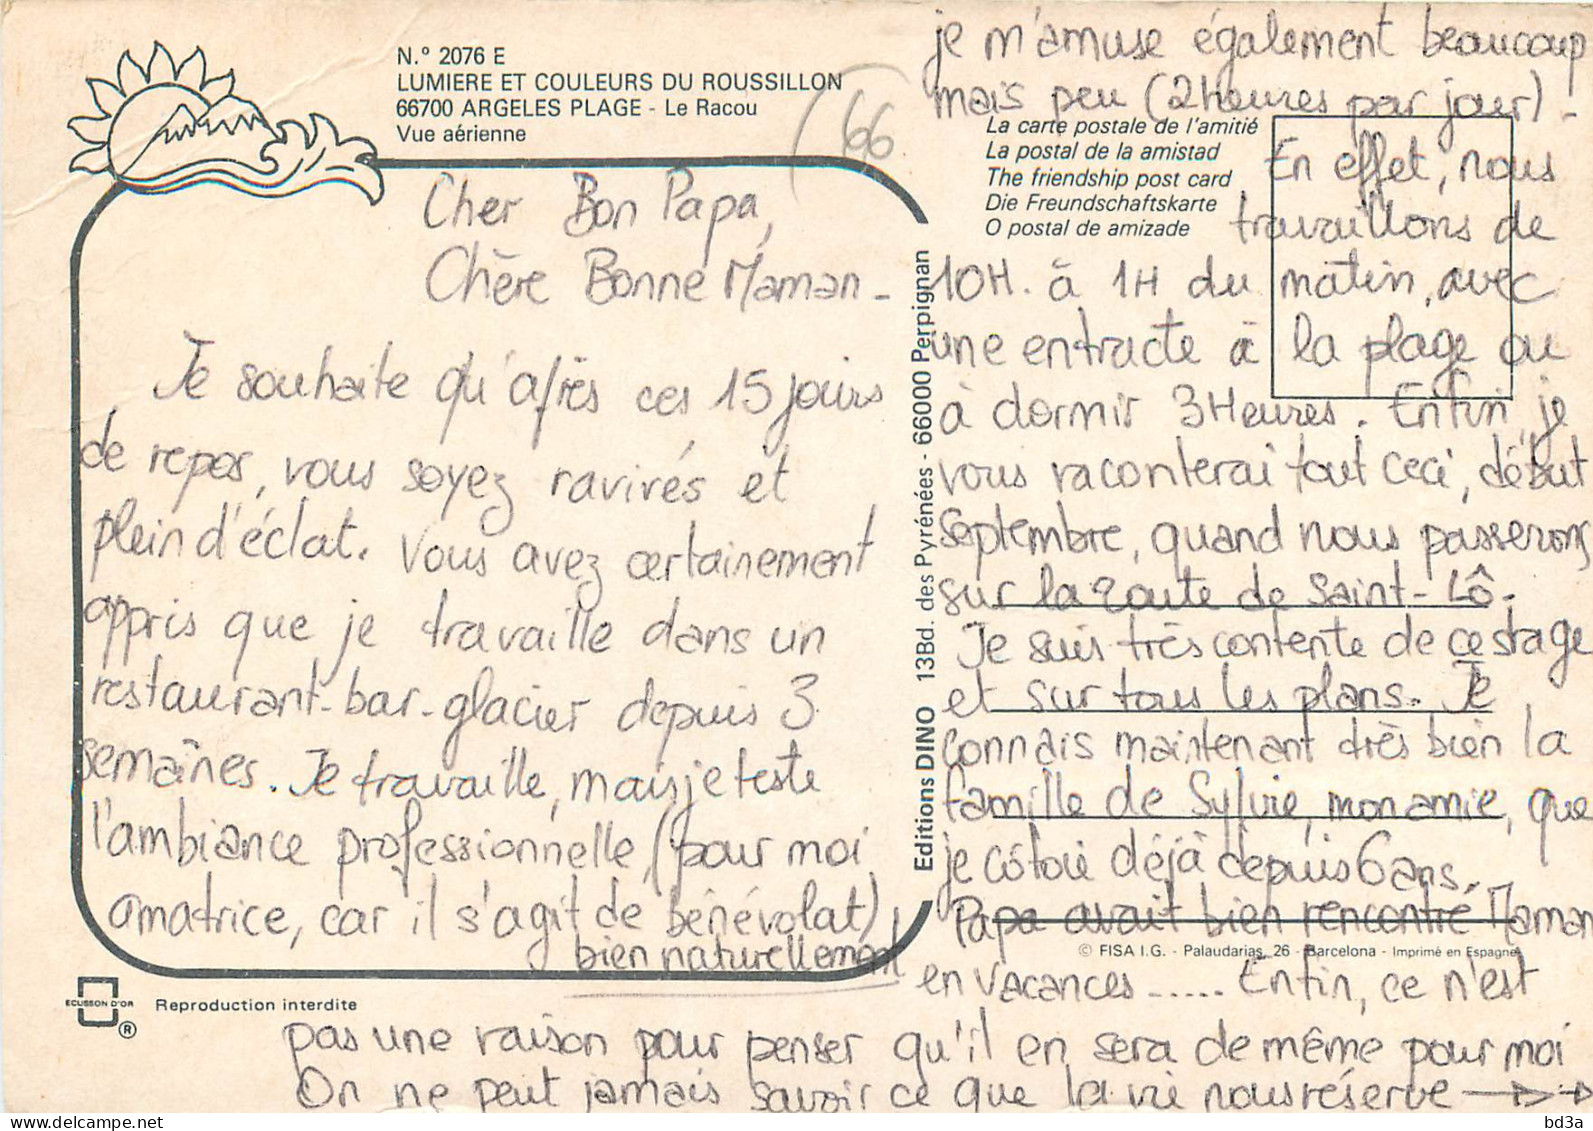 N.° 2076 E
LUMIERE ET COULEURS DU ROUSSILLON
66700 ARGELES PLAGE - Le Racou
Vue aérienne
(66
Cher Bon Papa,
Chère Bonne Maman -
Je souhaite qu'après ces 15 jours
de repos, vous soyez ravivés et
plein d'éclat. Vous avez certainement
appris que je travaille dans un
restaurant-bar-glacier depuis 3
semaines. Je travaille, mais je teste
l'ambiance professionnelle, (pour moi
amatrice, car il s'agit de bénévolat)
bien naturellement
je m'amuse également beaucoup
mais peu (2 heures par jour).
En effet, nous
travaillons de
10H. à 1H du matin, avec
une entracte à la plage ou
à dormir 3 Heures. Enfin, je
vous raconterai tout ceci, début
septembre, quand nous passerons
sur la route de Saint-Lô.
Je suis très contente de ce stage
et sur tous les plans. Je
connais maintenant très bien la
famille de Sylvie, mon amie, que
je côtoie déjà depuis 6 ans.
Papa avait bien rencontré Maman
en vacances ...... Enfin, ce n'est
pas une raison pour penser qu'il en sera de même pour moi
On ne peut jamais savoir ce que la vie nous réserve →→
La carte postale de l'amitié
La postal de la amistad
The friendship post card
Die Freundschaftskarte
O postal de amizade
Editions DINO 13Bd. des Pyrénées - 66000 Perpignan
© FISA I.G. - Palaudarias, 26 - Barcelona - Imprimé en Espagne
ECUSSON D'OR
®
Reproduction interdite
bd3a